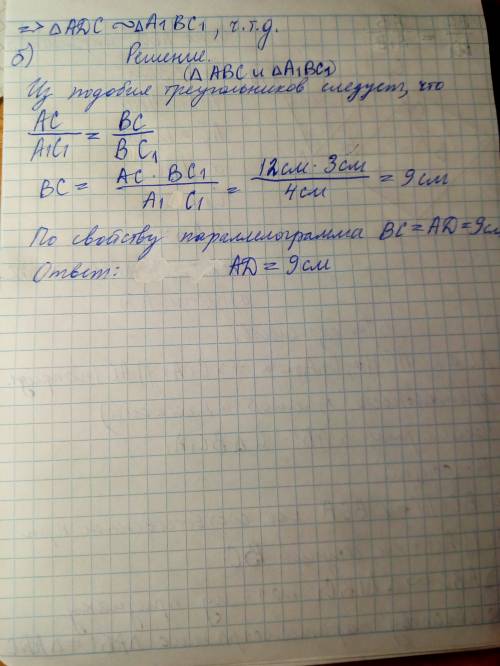 => △ADC ~ △A1BC1, ч.т.д.
б) Решение.
(△ABC и △A1BC1)
Из подобия треугольников следует, что
AC/A1C1 = BC/BC1
BC = AC · BC1/A1 C1 = 12см · 3см/4см = 9см
По свойству параллелограмма BC = AD = 9см
Ответ: AD = 9см